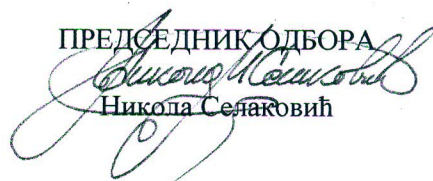 ПРЕДСЕДНИК ОДБОРА
Никола Селаковић